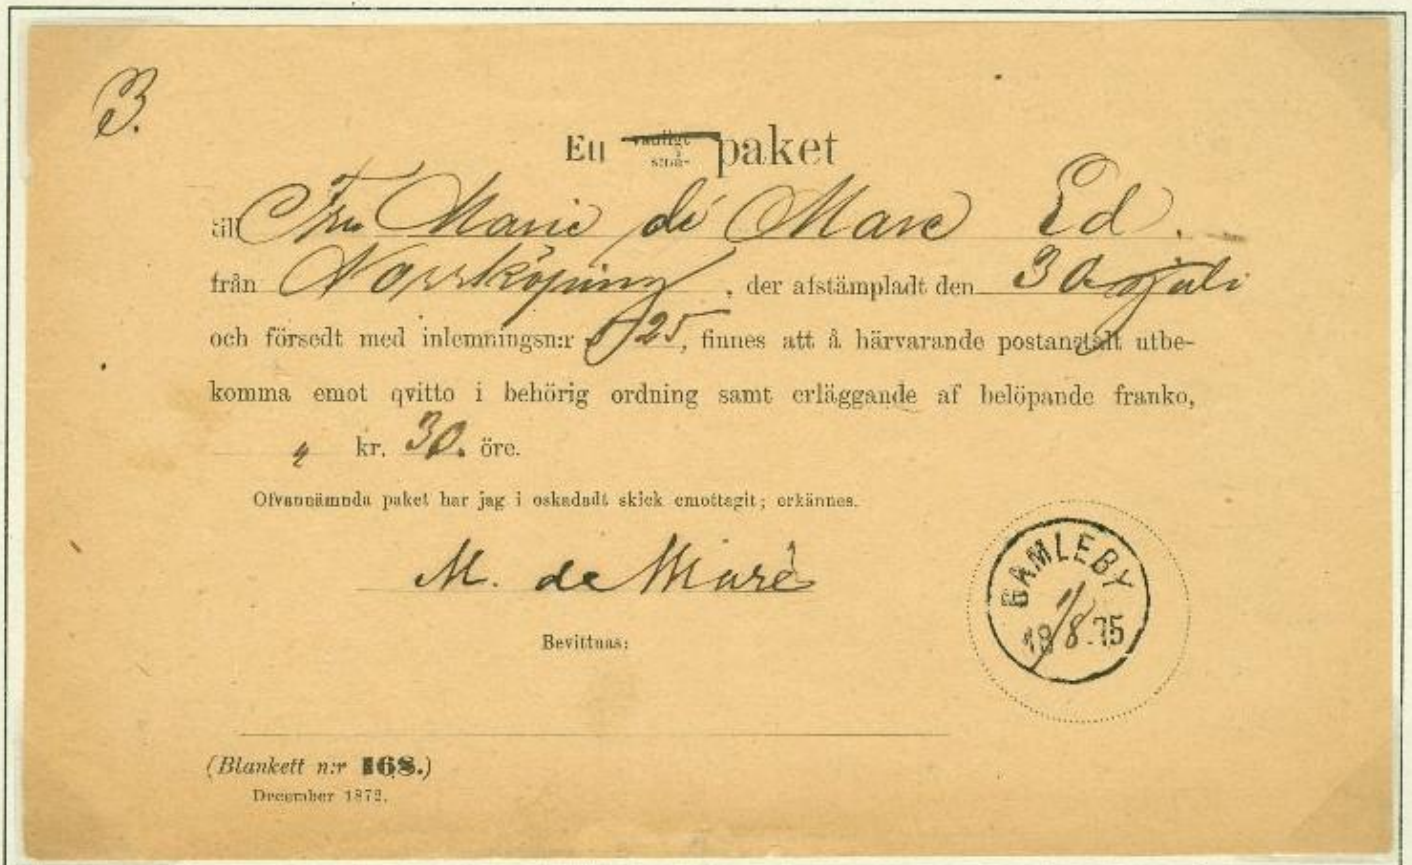 3.
Ett vanligt små- paket
till Fru Marie de Maré Ed.
från Norrköping, der afstämpladt den 30 juli
och försedt med inlemningsn:r 525, finnes att å härvarande postanstalt utbe-
komma emot qvitto i behörig ordning samt erläggande af belöpande franko,
" kr. 30. öre.
Ofvannämnda paket har jag i oskadadt skick emottagit; erkännes.
M. de Maré
Bevittnas:
GAMLEBY
1/8
1875
(Blankett n:r 168.)
December 1872.